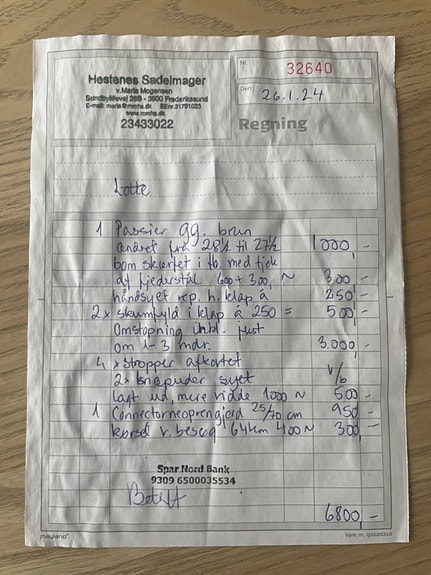 Nr. 32640
Hestenes Sadelmager
v. Maria Mogensen
Sundbylillevej 26B - 3600 Frederikssund
E-mail: maria@mmhs.dk SEnr.31701023
www.mmhs.dk
23433022
Den 26.1.24
Regning
Lotte
1 Passier gg. brun
ændret fra 28½ til 27½ 1000,-
bom skærtet i fb. med tjek
af fjederstål 600+300, ~ 300,-
håndsyet rep. h. klap á 250,-
2 x skumfyld i klap á 250 = 500,-
Omstopning inkl. just
om 1-3 mdr. 3.000,-
4 x stropper afkortet
2 x knæpuder syet %
lagt ud, mere vidde 1000 ~ 500,-
1 Connectorneoprengjord 25/70 cm 950,-
kørsel v. besøg 64km 400 ~ 300,-
Spar Nord Bank
9309 6500035534
6800,-
mayland
Vare nr.